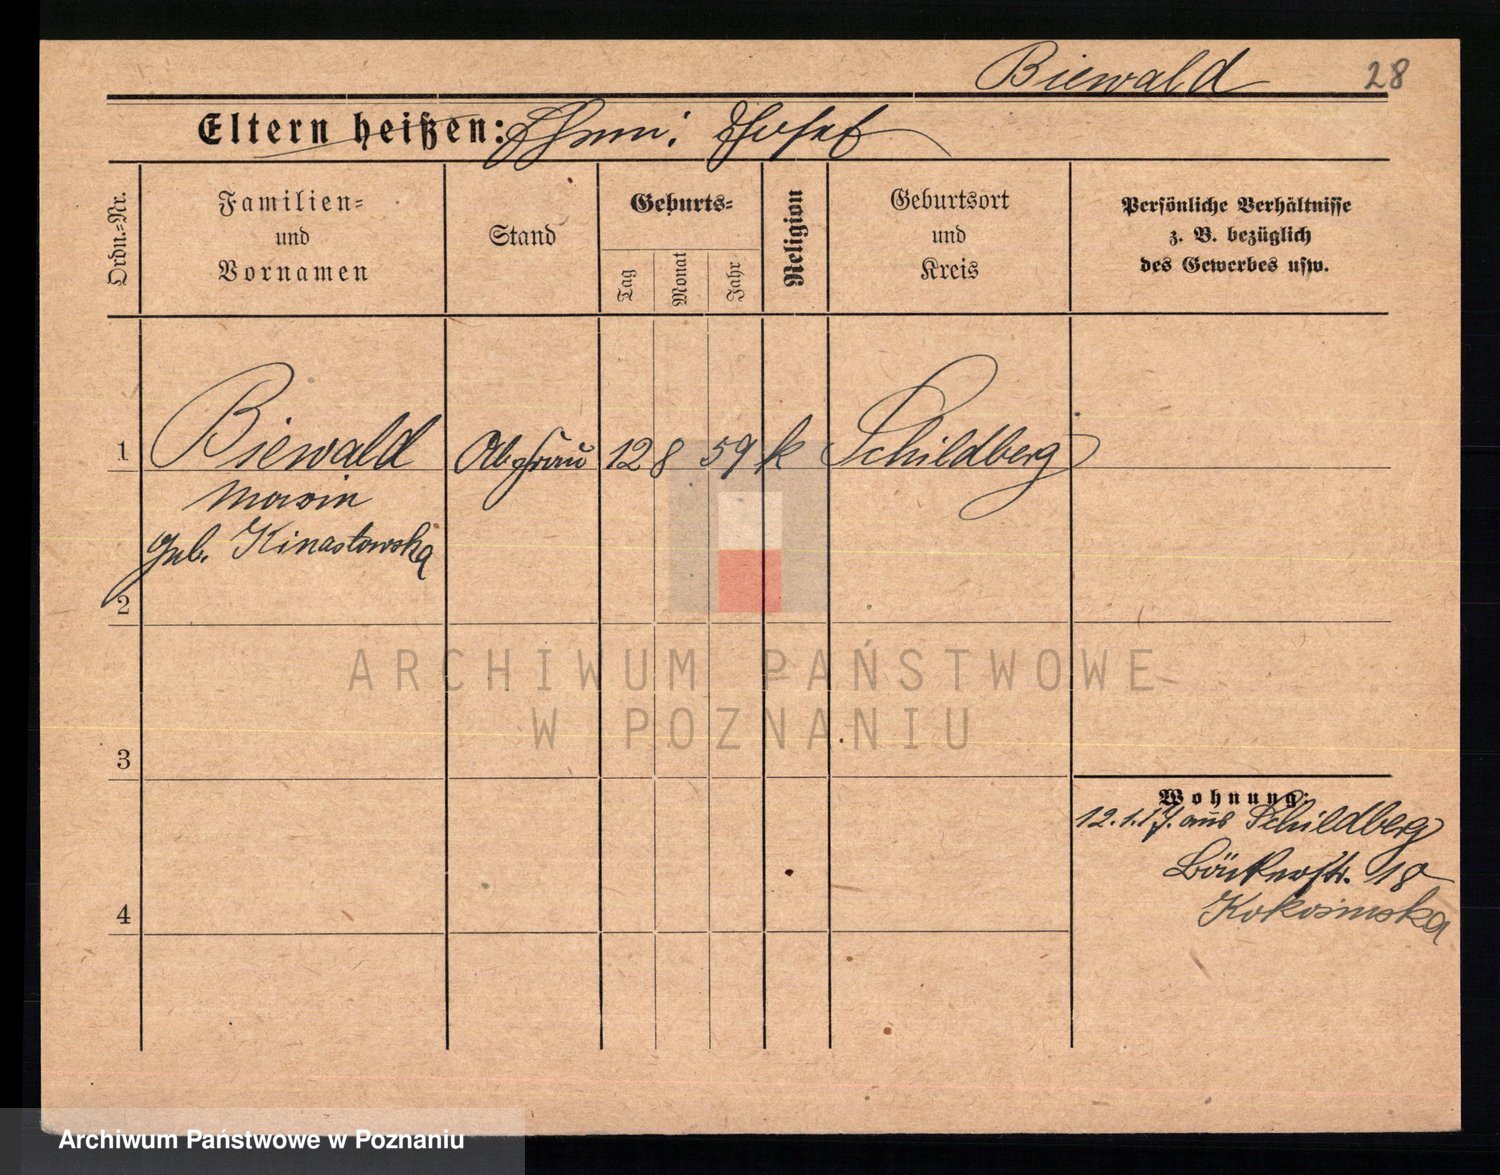 Biewald 28
Eltern heißen: Ehem: Josef
Ordn.=Nr.
Familien=
und
Vornamen
Stand
Geburts=
Tag
Monat
Jahr
Religion
Geburtsort
und
Kreis
Persönliche Verhältnisse
z. B. bezüglich
des Gewerbes usw.
1 Biewald 12 8 59 k Schildberg
Marie
geb. Kinastowska
2
3
4
Wohnung:
12.1.17. aus Schildberg
Bäckerstr. 18
ARCHIWUM PAŃSTWOWE
W POZNANIU
Archiwum Państwowe w Poznaniu